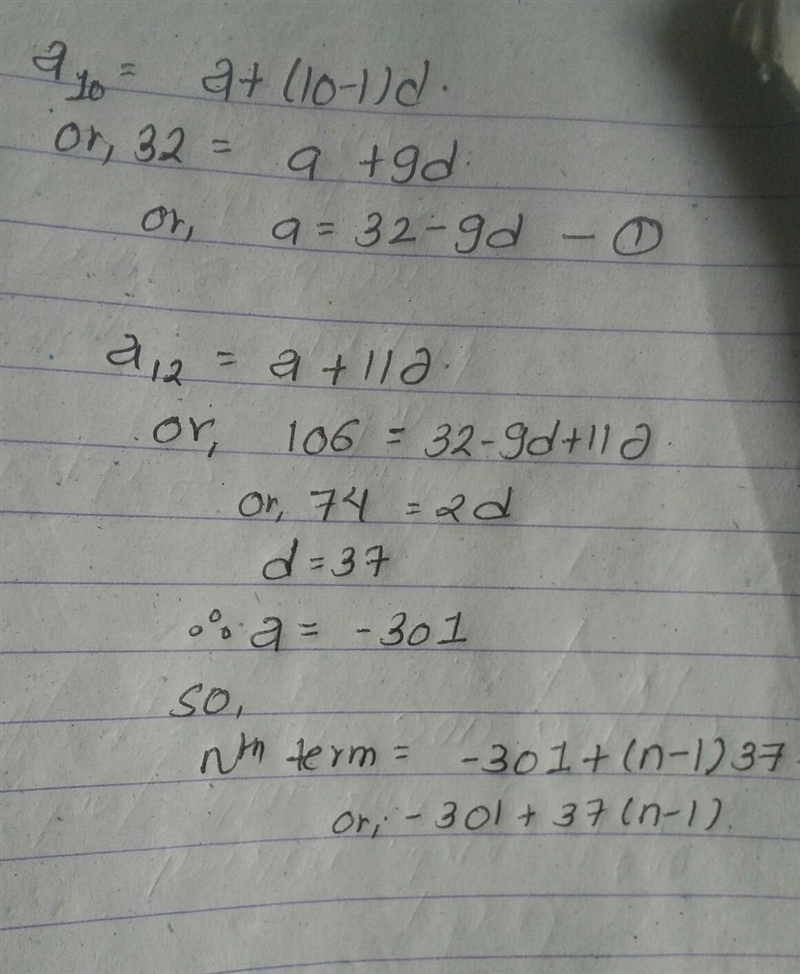 a₁₀ = a + (10-1)d.
or, 32 = a + 9d.
or, a = 32 - 9d - ①
a₁₂ = a + 11d.
or, 106 = 32 - 9d + 11d.
or, 74 = 2d
d = 37
∴ a = -301
so,
Nth term = -301 + (n-1) 37.
or, - 301 + 37 (n-1).